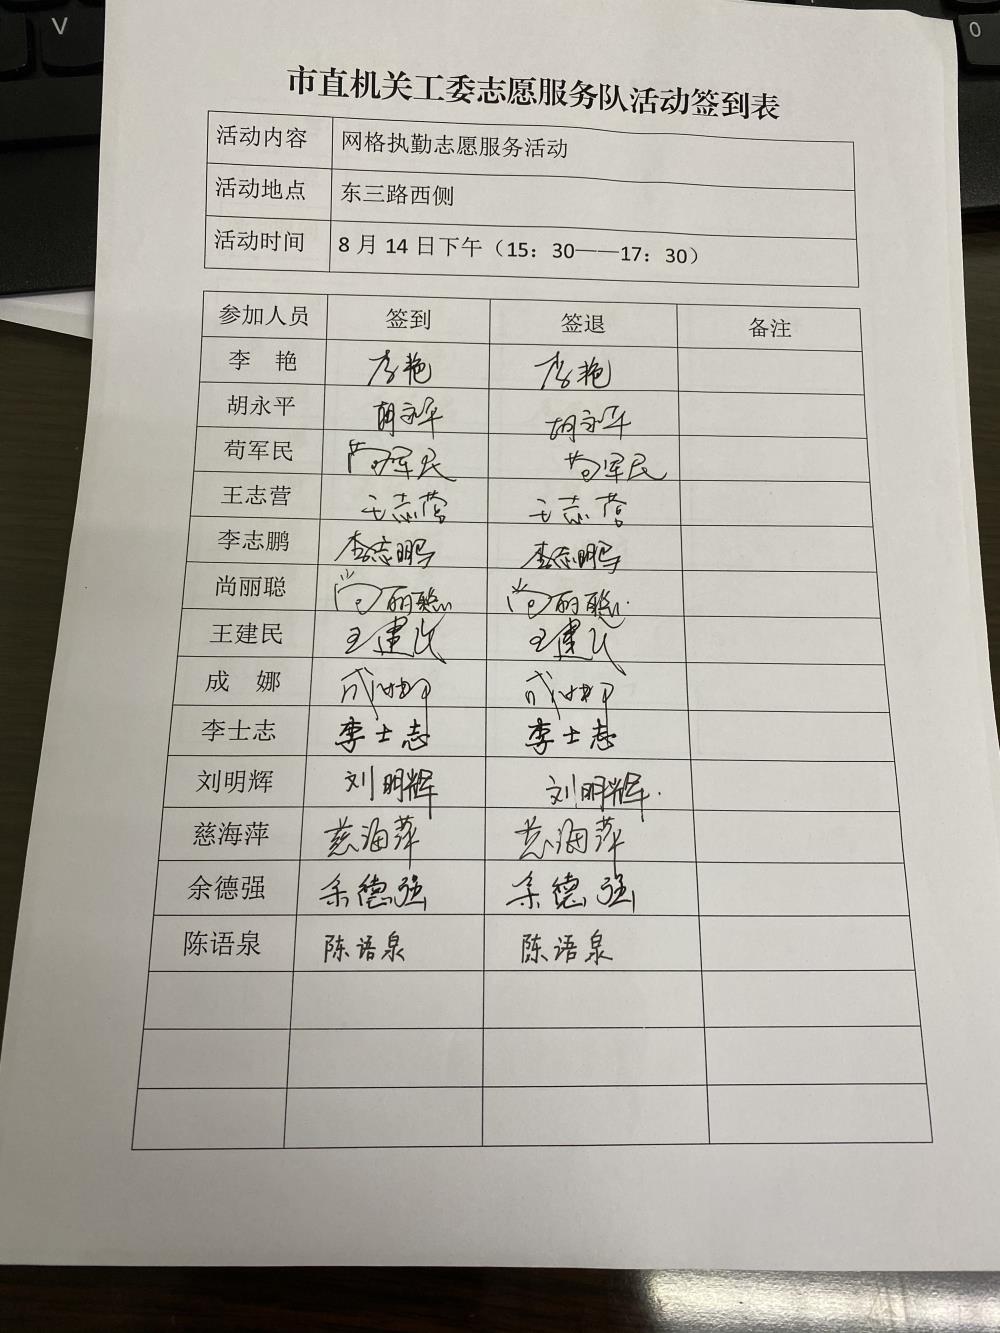 V
0
市直机关工委志愿服务队活动签到表
活动内容 网格执勤志愿服务活动
活动地点 东三路西侧
活动时间 8月14日下午（15：30——17：30）
参加人员 签到 签退 备注
李 艳 李艳 李艳
胡永平 胡永平 胡永平
苟军民 苟军民 苟军民
王志营 王志营 王志营
李志鹏 李志鹏 李志鹏
尚丽聪 尚丽聪 尚丽聪
王建民 王建民 王建民
成 娜 成娜 成娜
李士志 李士志 李士志
刘明辉 刘明辉 刘明辉
慈海萍 慈海萍 慈海萍
余德强 余德强 余德强
陈语泉 陈语泉 陈语泉